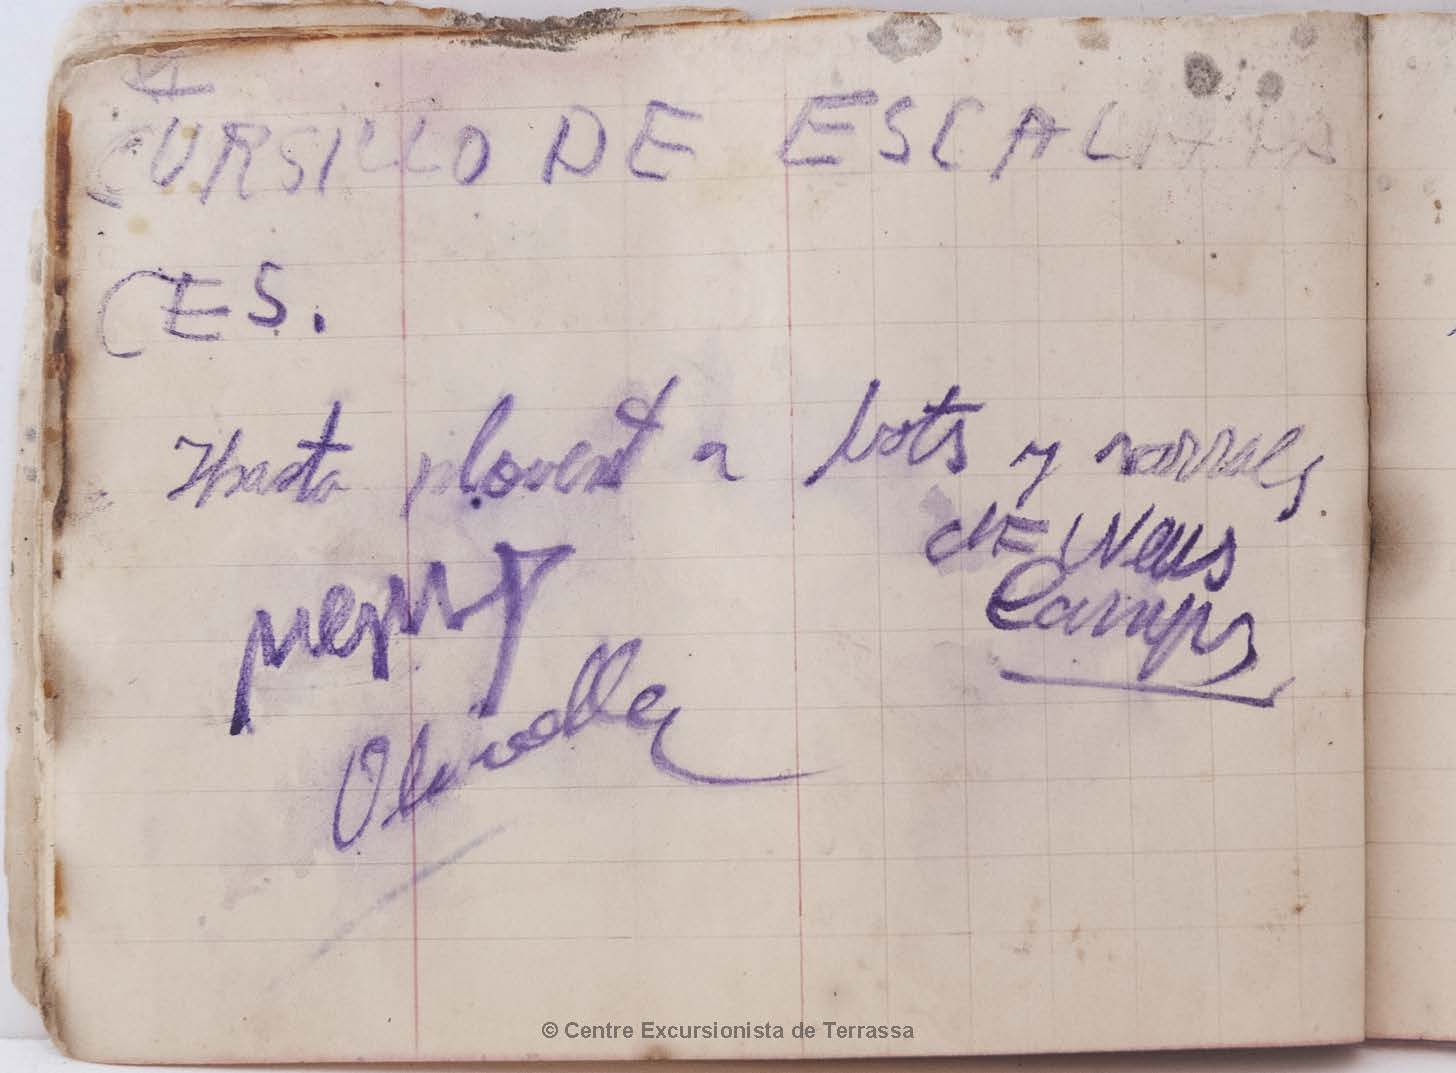 VI
CURSILLO DE ESCALADA
CES.
Hasta plovent a bots y barrals
de Neus
Camps
Olivella
© Centre Excursionista de Terrassa